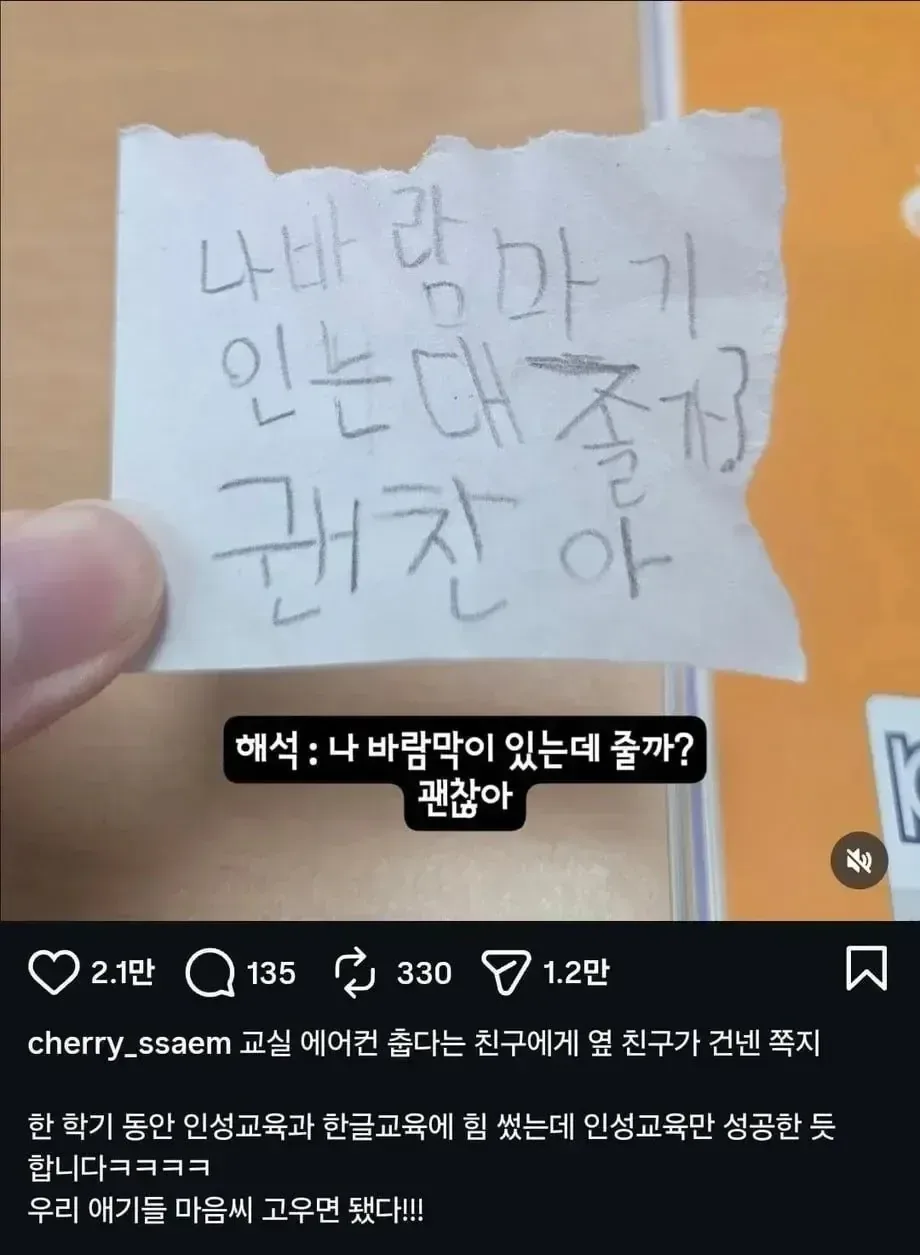 나바람마기
인는대 졸가?
괜찬아
해석 : 나 바람막이 있는데 줄까?
괜찮아
2.1만 135 330 1.2만
cherry_ssaem 교실 에어컨 춥다는 친구에게 옆 친구가 건넨 쪽지
한 학기 동안 인성교육과 한글교육에 힘 썼는데 인성교육만 성공한 듯
합니다ㅋㅋㅋㅋ
우리 애기들 마음씨 고우면 됐다!!!